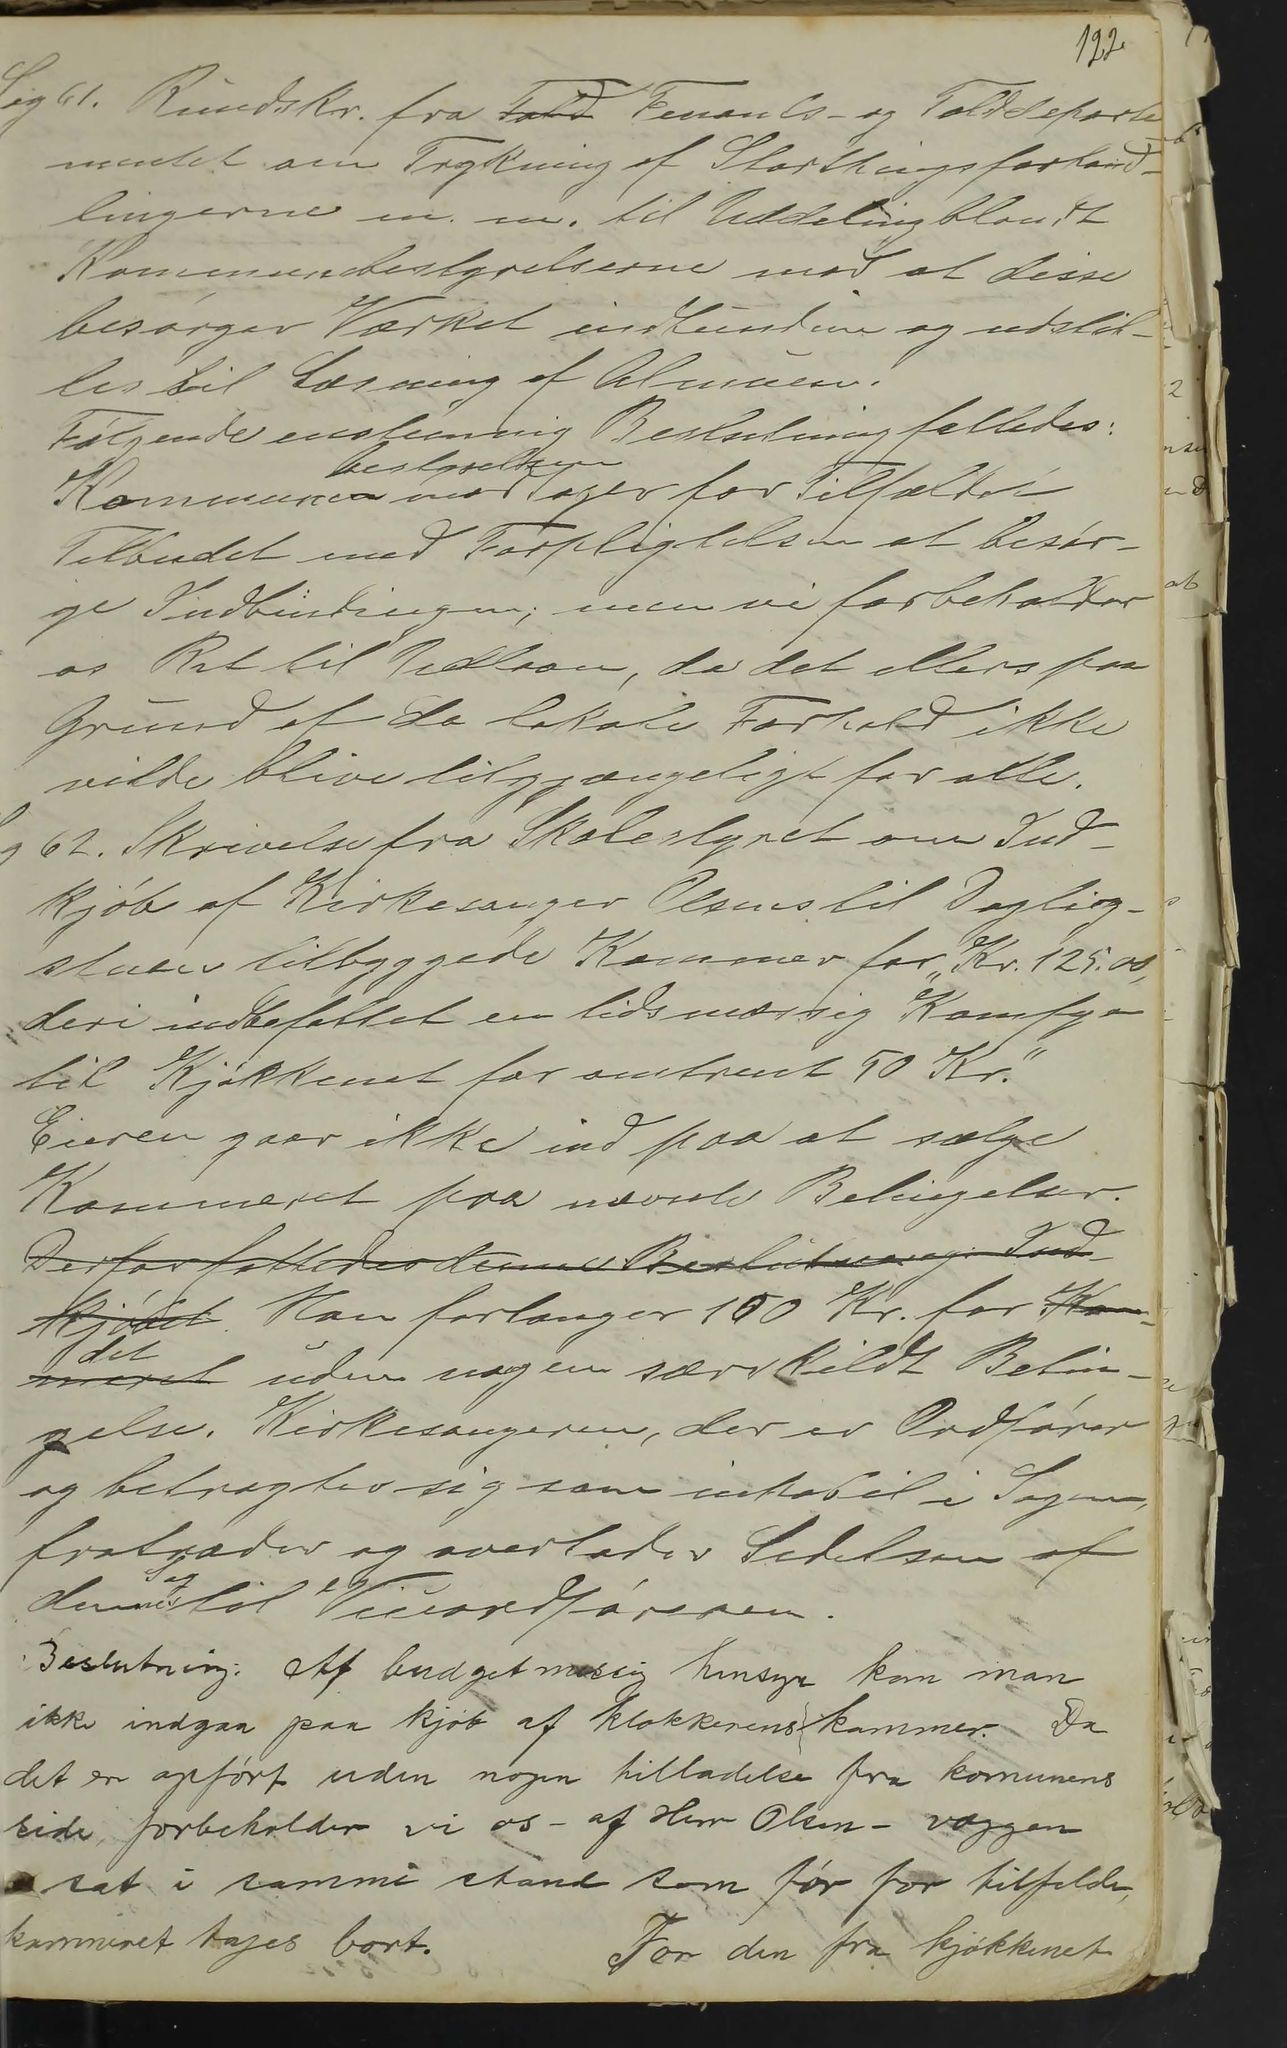 122
Sag 61. Rundskr. fra Told Fenants- og Tolddeparte-
mentet om Trykning af Storthingsforhand-
lingerne m. m. til Uddeling blandt
Kommunebestyrelserne mod at disse
besørger Værket indbundne og udstil-
les til Læsning af Almuen.
Følgende enstemmig Beslutning fattedes:
bestyrelsen
Kommunen modtager for Tilfældet
Tilbudet med Forpligtelsen at besør-
ge Indbindingen; men vi forbeholder
os Ret til Udlaan, da det ellers paa
Grund af de lokale Forhold ikke
vilde blive tilgjængeligt for alle.
g 62. Skrivelse fra Skolestyret om Ind-
kjøb af Kirkesanger Olsens til Daglig-
stuen tilbyggede Kammer for „Kr. 125.00,
deri indbefattet en tidsmæssig Komfyr
til Kjøkkenet for omtrent 50 Kr."
Eieren gaar ikke ind paa at sælge
Kammeret paa nævnte Betingelser.
Derfor fattedes denne Beslutning: Ind-
kjøbet Han forlanger 100 Kr. for Kam-
det
meret uden nogen særskildt Betin-
gelse. Kirkesangeren, der er Ordfører
og betragter sig som inhabil i Sagen,
fratræder og overlader Ledelsen af
Sag
denne til Viceordføreren.
Beslutning: Af budgetmessig hensyn kan man
ikke indgaa paa kjøb af klokkerens kammer. Da
det er opført uden nogen tilladelse fra komunens
side, forbeholder vi os – af Herr Olsen – væggen
sat i samme stand som før for tilfelde,
kammeret tages bort. For den fra kjøkkenet